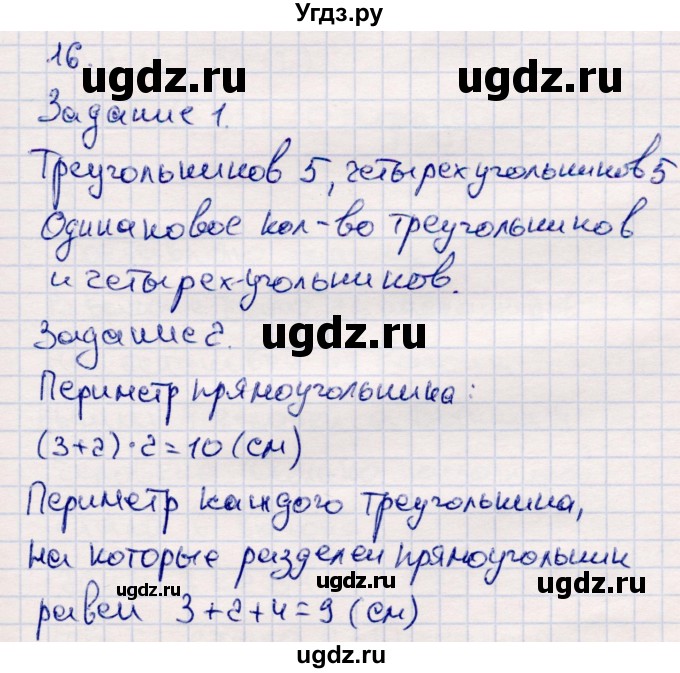 Угдз.ру
16.
ugdz.ru ugdz.ru
Задание 1.
Треугольников 5, четырехугольников 5
Одинаковое кол-во треугольников
и четырех-угольников.
Задание 2.
ugdz.ru
Периметр прямоугольника:
(3+2)·2=10 (см)
Периметр каждого треугольника,
на которые разделен прямоугольник
ugdz.ru ugdz.ru
равен 3+2+4=9 (см)
ugdz.ru